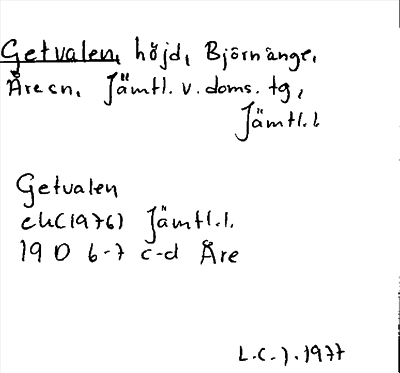 Getvalen, höjd, Björnänge,
Åre sn, Jämtl. v. doms. tg,
Jämtl. l
Getvalen
ek(1976) Jämtl.l.
19 D 6-7 c-d Åre
L.C.J. 1977